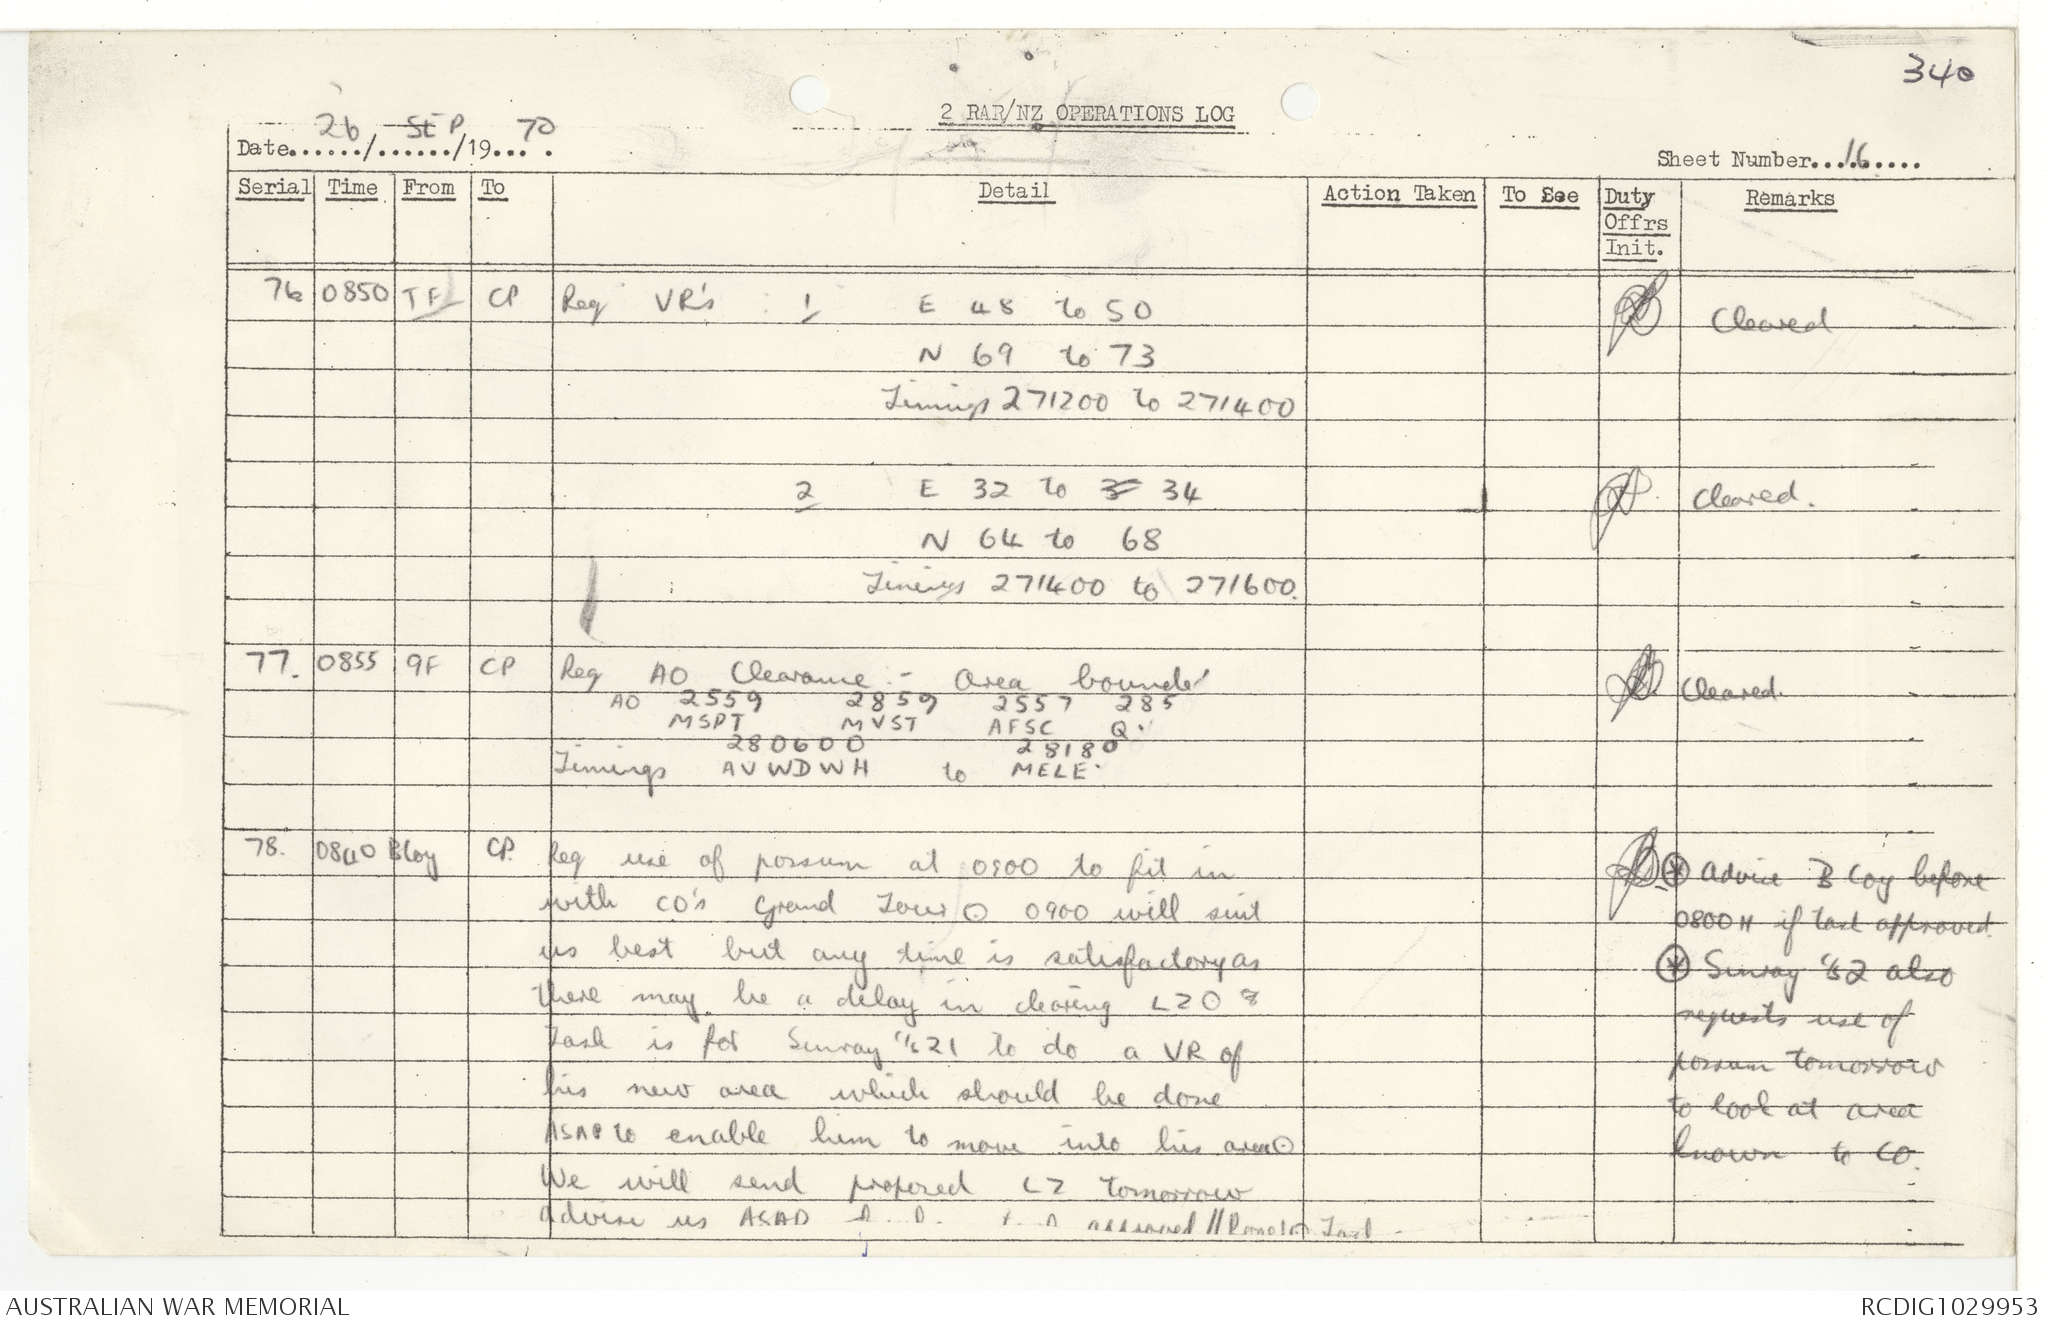 340
2 RAR/NZ OPERATIONS LOG
Date 26/SEP/1970.
Sheet Number 16
Serial Time From To Detail Action Taken To See Duty Offrs Init. Remarks
76 0850 TF CP Req VR's : 1 E 48 to 50 Cleared
N 69 to 73
Timings 271200 to 271400
2 E 32 to 34 Cleared.
N 64 to 68
Timings 271400 to 271600.
77. 0855 9F CP Req AO Clearance :- Area bounded Cleared.
AO 2559 2859 2557 285
MSPT MVST AFSC Q.
280600 28180
Timings AVWDWH to MELE.
78. 0840 B Coy CP. Req use of possum at 0900 to fit in
with CO's Grand Tour ⊙ 0900 will suit
us best but any time is satisfactory as
there may be a delay in clearing LZ ⊙
Task is for Sunray 21 to do a VR of
his new area which should be done
ASAP to enable him to move into his area ⊙
We will send proposed LZ tomorrow
advise us ASAP approved // Task
* Advise B Coy before
0800H if task approved.
* Sunray also
requests use of
possum tomorrow
to look at area
known to CO.
AUSTRALIAN WAR MEMORIAL
RCDIG1029953